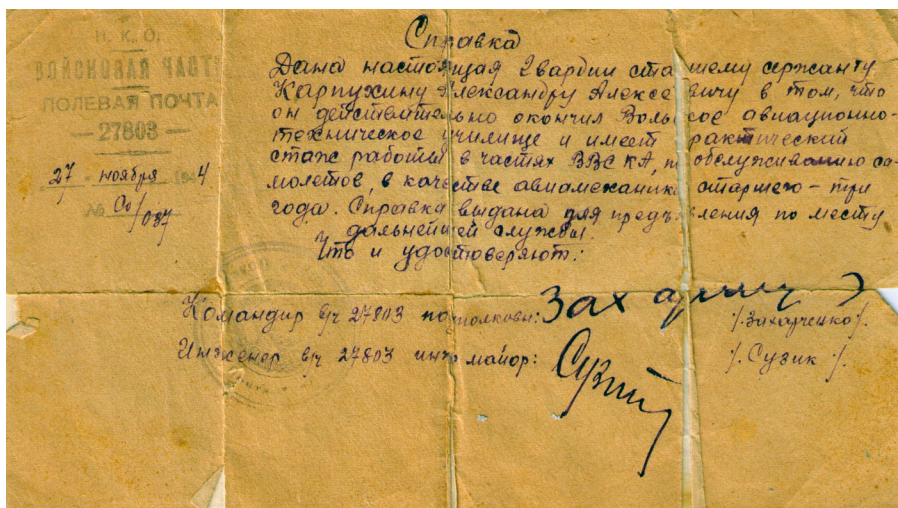 Н. К. О.
ПОЛЕВАЯ ПОЧТА
— 27803 —
27 ноября 1944
№ Со/037
Справка
Дана настоящая Гвардии старшему сержанту
Карпухину Александру Алексеевичу в том, что
он действительно окончил Вольское авиационно-
техническое училище и имеет практический
стаж работы в частях ВВС КА, по обслуживанию са-
молетов, в качестве авиамеханика старшего – три
года. Справка выдана для предъявления по месту
дальнейшей службы.
Что и удостоверяют:
Командир в/ч 27803 подполковн: /.Захарченко/.
Инженер в/ч 27803 инж. майор: /. Сузик /.